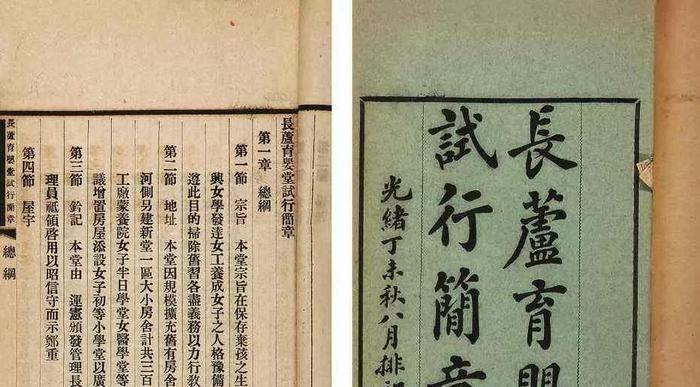 長蘆育嬰堂試行簡章
第一章 總綱
第一節 宗旨 本堂宗旨在保存棄孩之生
興女學發達女工養成女子之人格豫備
遵此目的掃除舊習各盡義務以力行敎
第二節 地址 本堂因規模擴充舊有房舍
河側另建新堂一區大小房舍計共三百
工廠蒙養院女子半日學堂女醫學堂等
議增置房屋添設女子初等小學堂以廣
第三節 鈐記 本堂由 運憲頒發管理長
理員祗領啓用以昭信守而示鄭重
第四節 屋宇
長蘆育嬰堂試行簡章
總綱
長蘆育
試行簡章
光緒丁未秋八月排